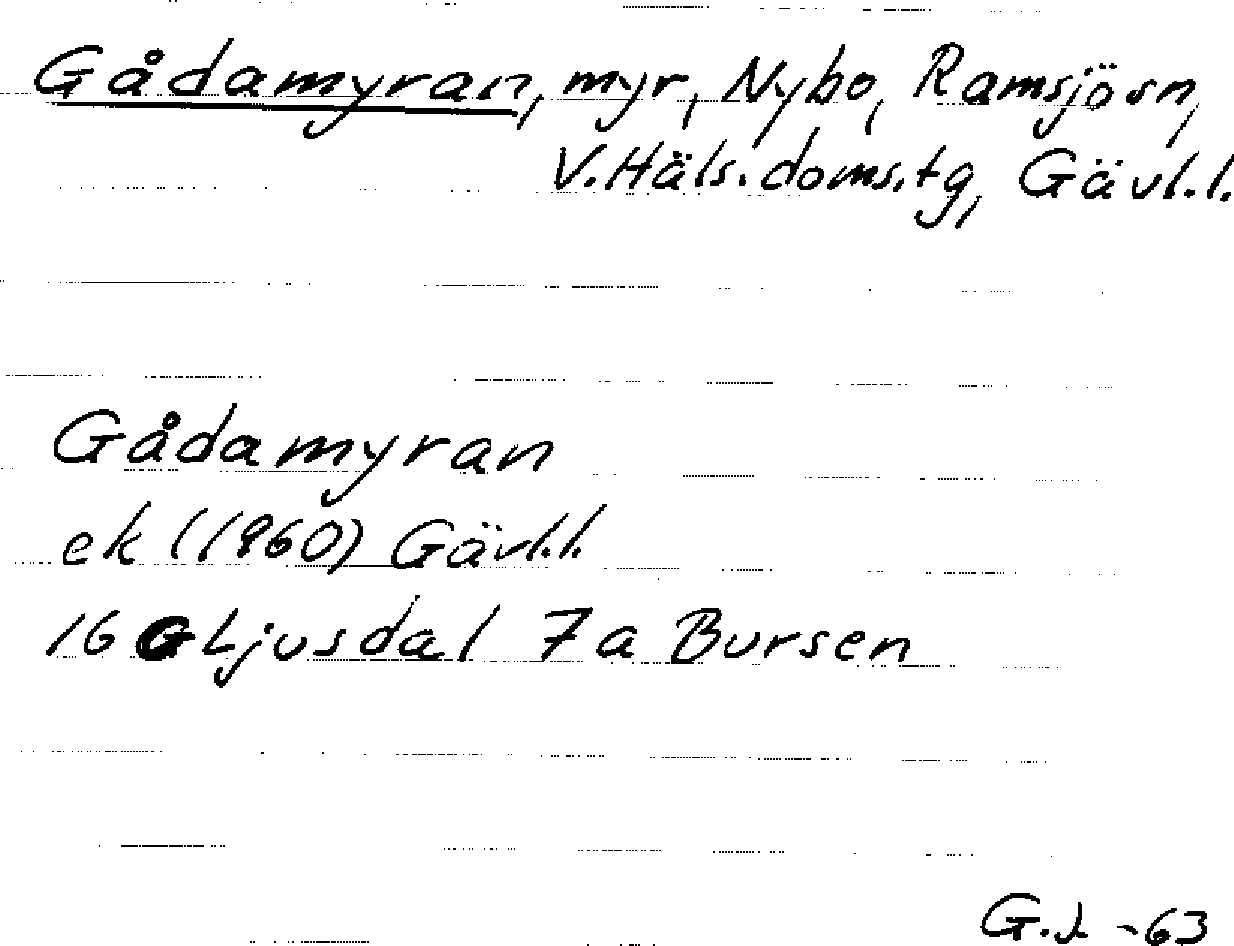 Gådamyran, myr, Nybo, Ramsjö sn,
V. Häls. doms. tg, Gävl. l.
Gådamyran
ek (1960) Gävl. l.
16 G Ljusdal 7a Bursen
G. L -63